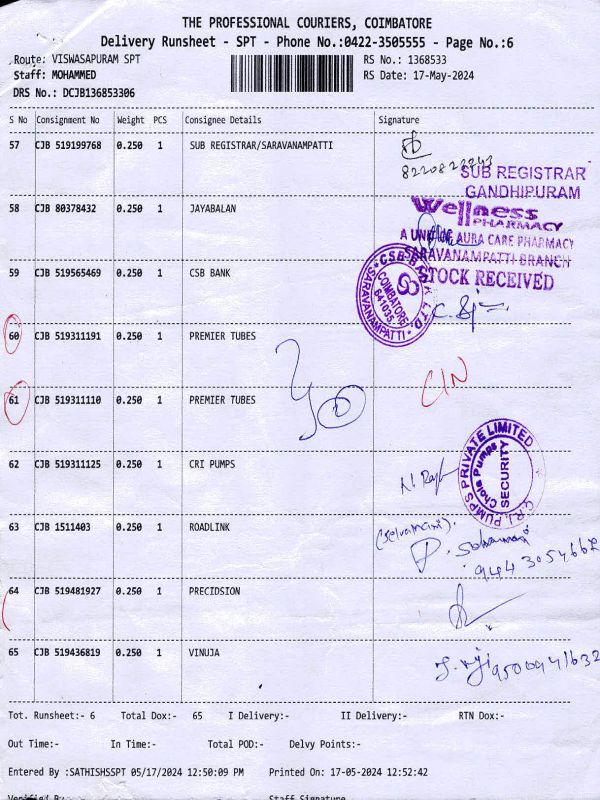 THE PROFESSIONAL COURIERS, COIMBATORE
Delivery Runsheet - SPT - Phone No.:0422-3505555 - Page No.:6
Route: VISWASAPURAM SPT RS No.: 1368533
Staff: MOHAMMED RS Date: 17-May-2024
DRS No.: DCJB136853306
S No Consignment No Weight PCS Consignee Details Signature
57 CJB 519199768 0.250 1 SUB REGISTRAR/SARAVANAMPATTI
SUB REGISTRAR
GANDHIPURAM
58 CJB 80378432 0.250 1 JAYABALAN
Wellness
PHARMACY
A UNIT OF AURA CARE PHARMACY
SARAVANAMPATTI BRANCH
STOCK RECEIVED
59 CJB 519565469 0.250 1 CSB BANK
CSB BANK LTD
COIMBATORE
641035
SARAVANAMPATTI
60 CJB 519311191 0.250 1 PREMIER TUBES
CIN
61 CJB 519311110 0.250 1 PREMIER TUBES
62 CJB 519311125 0.250 1 CRI PUMPS
C.R.I. PUMPS PRIVATE LIMITED
SECURITY
63 CJB 1511403 0.250 1 ROADLINK
(Selvamani).
944 3054662
64 CJB 519481927 0.250 1 PRECIDSION
65 CJB 519436819 0.250 1 VINUJA
9500941632
Tot. Runsheet:- 6 Total Dox:- 65 I Delivery:- II Delivery:- RTN Dox:-
Out Time:- In Time:- Total POD:- Delvy Points:-
Entered By :SATHISHSSPT 05/17/2024 12:50:09 PM Printed On: 17-05-2024 12:52:42
Verified By Staff Signature